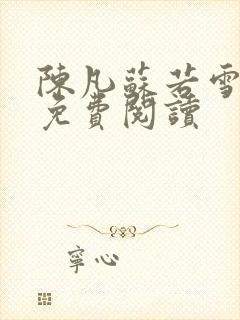 陳凡蘇若雪
免費閱讀
寧心